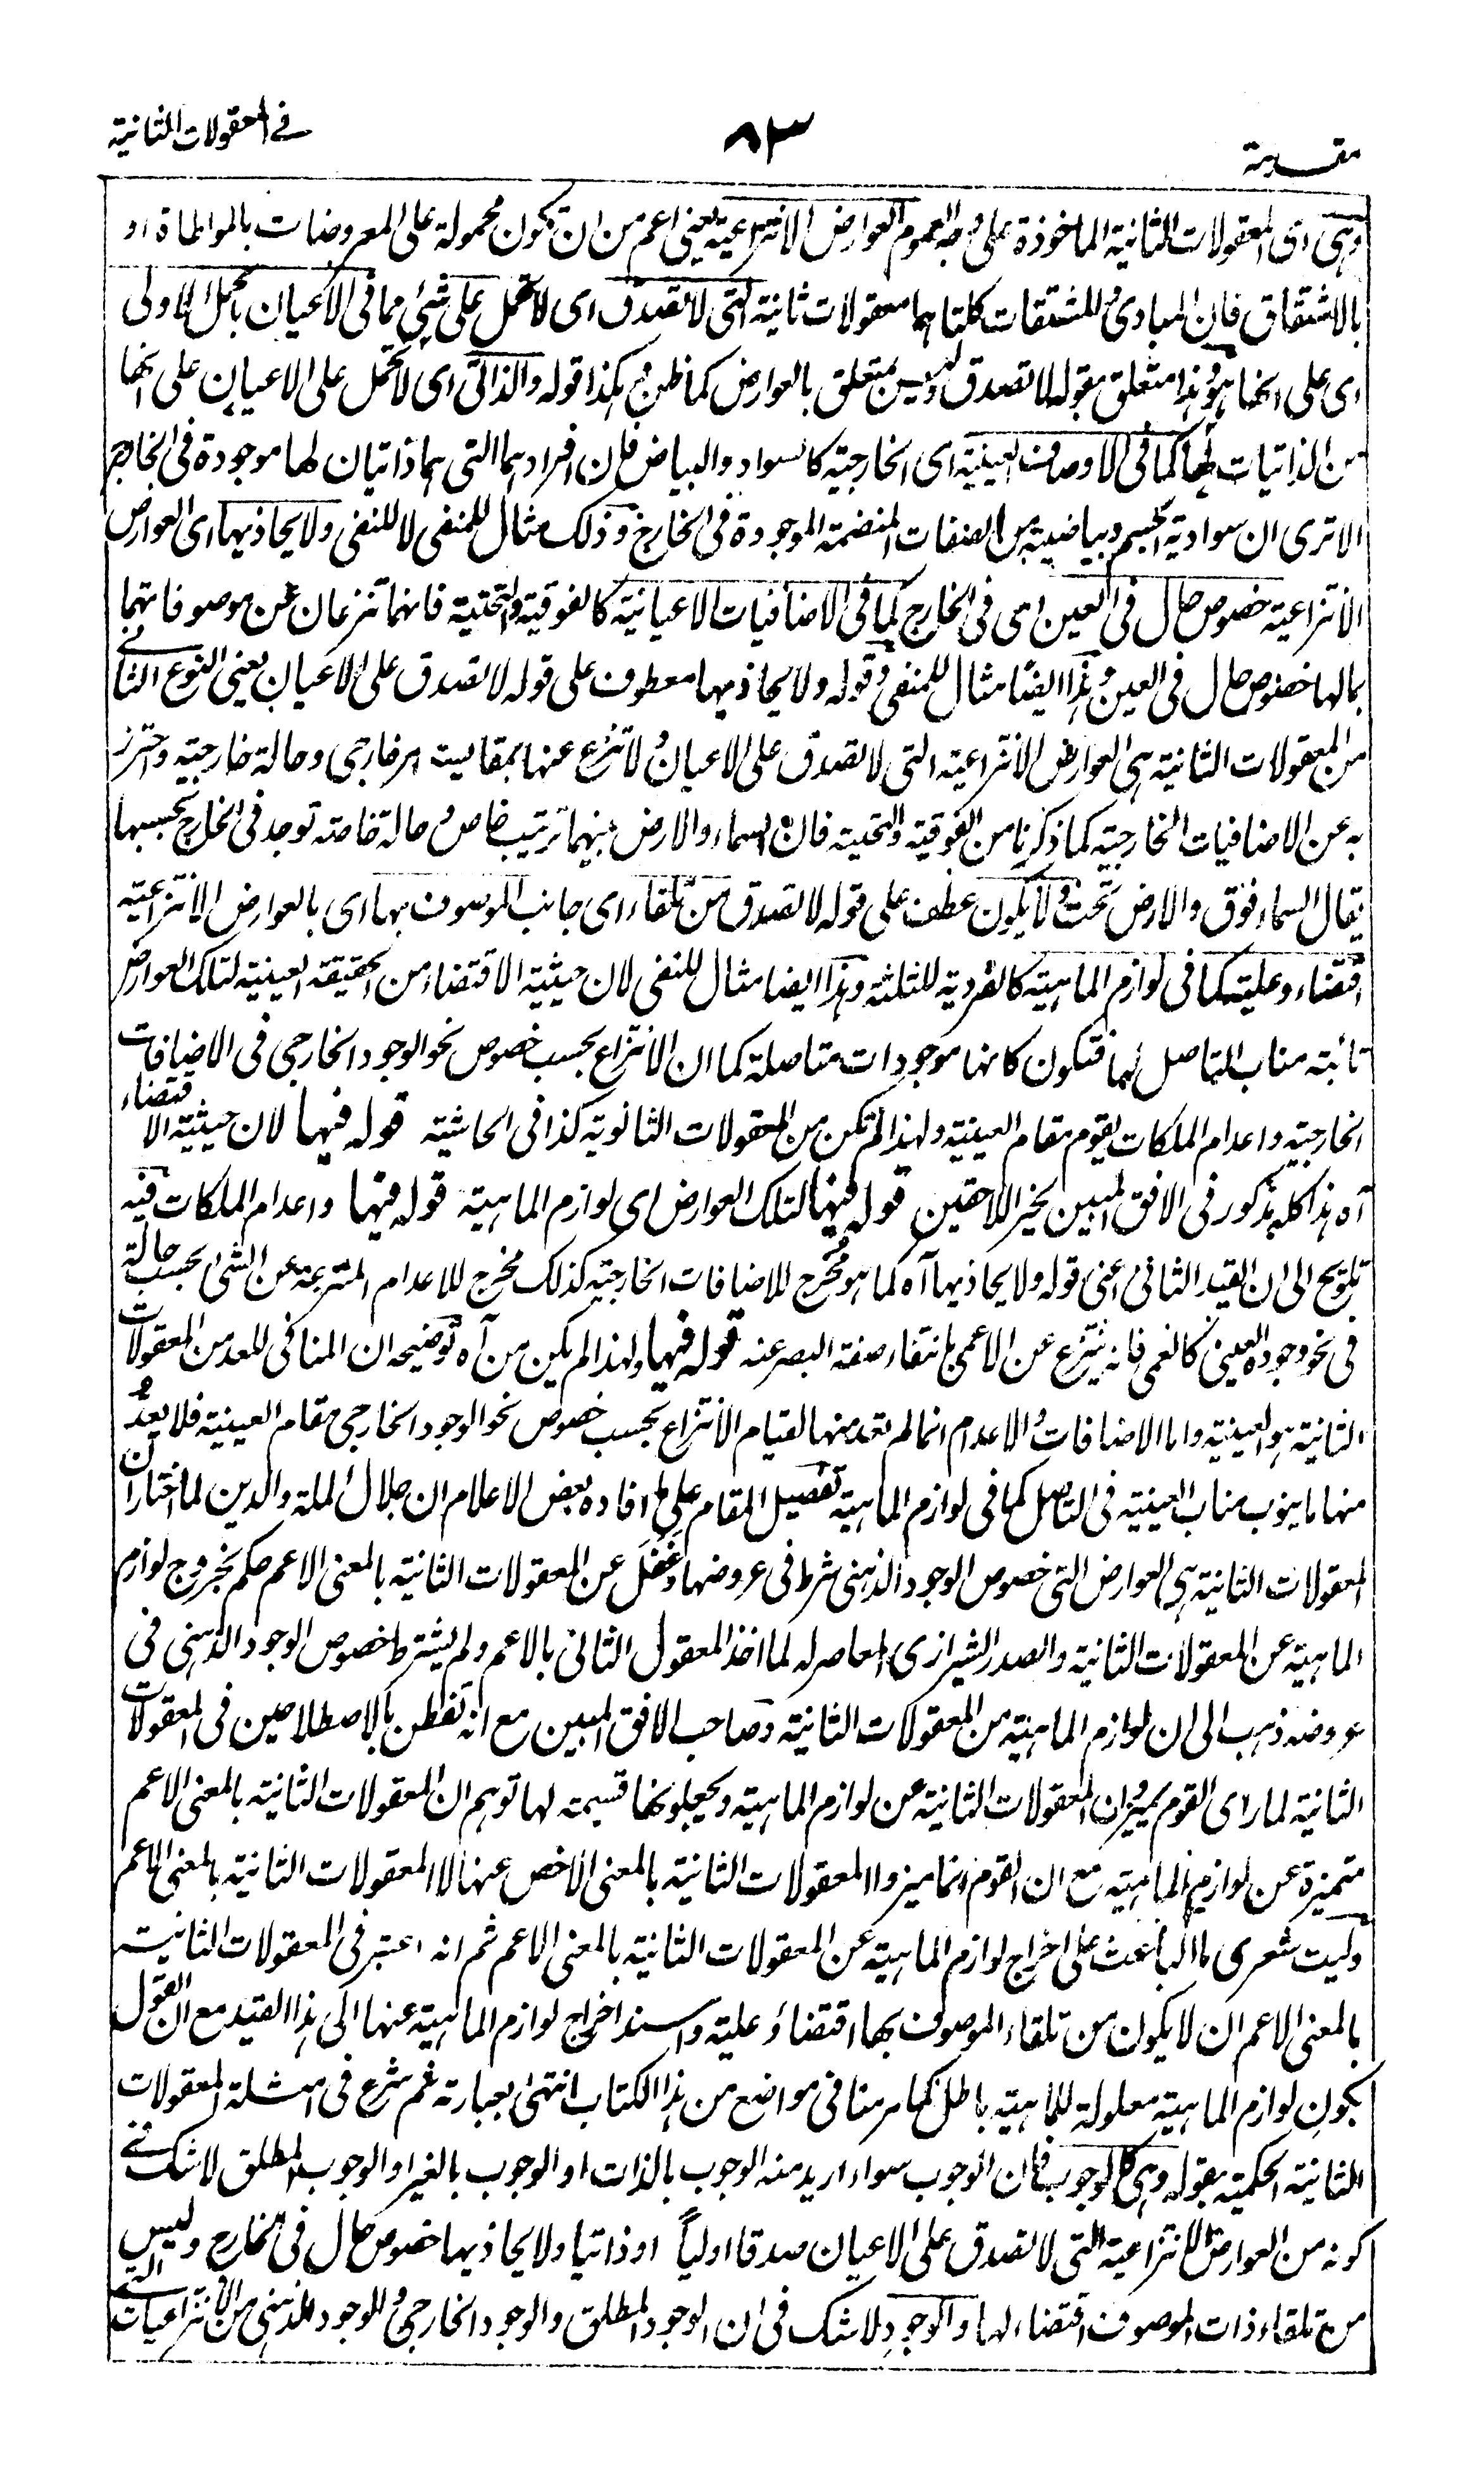 مقدمة
٨٣
في المعقولات الثانية
وهي اى المعقولات الثانية الماخوذة على وجه العموم العوارض الانتزاعية يعنى اعم من ان تكون محمولة على المعروضات بالمواطاة او
بالاشتقاق فان المبادى والمشتقات كلتاهما معقولات ثانية التى لا تصدق اى لا تحمل على شئ مما فى الاعيان بالحمل الاولى
اى على انها هو وهذا متعلق بقوله لا تصدق وليس متعلق بالعوارض كما ظن وهكذا قوله والذاتى اى لا تحمل على الاعيان على انها
من الذاتيات لها كما فى الاوصاف العينية اى الخارجية كالسواد والبياض فان افرادهما التى هما ذاتيان لها موجودة فى الخارج
الا ترى ان سوادية الجسم وبياضيته من الصفات المنضمة الموجودة فى الخارج وذلك مثال للمنفى لا للنفى ولا يحاذيها اى العوارض
الانتزاعية خصوص حال فى العين اى فى الخارج كما فى الاضافيات الاعيانية كالفوقية والتحتية فانهما تنزعان عن موصوفاتهما
بمالها خصوص حال فى العين وهذا ايضا مثال للمنفى وقوله ولا يحاذيها معطوف على قوله لا تصدق على الاعيان يعنى النوع الثانى
من المعقولات الثانية هى العوارض الانتزاعية التى لا تصدق على الاعيان ولا تنزع عنها بمقايسة امر خارجى وحالة خارجية واحترز
به عن الاضافيات الخارجية كما ذكرنا من الفوقية والتحتية فان السماء والارض بينهما ترتيب خاص وحالة خاصة توجد فى الخارج بحسبها
يقال السماء فوق والارض تحت ولا يكون عطف على قوله لا تصدق من تلقاء اى جانب الموصوف بها اى بالعوارض الانتزاعية
اقتضاء وعلية كما فى لوازم الماهية كالفردية للثلثة وهذا ايضا مثال للنفى لان حيثية الاقتضاء من الحقيقة العينية لتلك العوارض
نائبة مناب التاصل لها فتكون كانها موجودات متاصلة كما ان الانتزاع بحسب خصوص نحو الوجود الخارجى فى الاضافات
الخارجية واعدام الملكات يقوم مقام العينية ولهذا لم تكن من المعقولات الثانوية كذا فى الحاشية قوله فيها لان حيثية الاقتضاء
آه هذا كله مذكور فى الافق المبين لخير اللاحقين قوله فيها لتلك العوارض اى لوازم الماهية قوله فيها واعدام الملكات فيه
تلويح الى ان القيد الثانى اعنى قوله ولا يحاذيها آه كما هو مخرج للاضافات الخارجية كذلك مخرج للاعدام المنتزعة عن الشئ بحسب حالة
فى نحو وجوده العينى كالعمى فانه ينتزع عن الاعمى بانتفاء صفة البصر عنه قوله فيها ولهذا لم يكن من آه توضيحه ان المنافى للعد من المعقولات
الثانية هو العينية واما الاضافات والاعدام انما لم تعد منها لقيام الانتزاع بحسب خصوص نحو الوجود الخارجى مقام العينية فلا يعد
منها ما ينوب مناب العينية فى التاصل كما فى لوازم الماهية تفصيل المقام على ما افاده بعض الاعلام ان جلال الملة والدين لما اختار ان
المعقولات الثانية هى العوارض التى خصوص الوجود الذهنى شرط فى عروضها وغفل عن المعقولات الثانية بالمعنى الاعم حكم بخروج لوازم
الماهية عن المعقولات الثانية والصدر الشيرازى المعاصر له لما اخذ المعقول الثانى بالاعم ولم يشترط خصوص الوجود الذهنى فى
عروضه ذهب الى ان لوازم الماهية من المعقولات الثانية وصاحب الافق المبين مع انه تفطن بالاصطلاحين فى المعقولات
الثانية لما راى القوم يميزون المعقولات الثانية عن لوازم الماهية ويجعلونها قسيمة لها توهم ان المعقولات الثانية بالمعنى الاعم
متميزة عن لوازم الماهية مع ان القوم انما ميزوا المعقولات الثانية بالمعنى الاخص عنها لا المعقولات الثانية بالمعنى الاعم
وليت شعرى ما الباعث على اخراج لوازم الماهية عن المعقولات الثانية بالمعنى الاعم ثم انه اعتبر فى المعقولات الثانية
بالمعنى الاعم ان لا يكون من تلقاء الموصوف بها اقتضاء وعلية واسند اخراج لوازم الماهية عنها الى هذا القيد مع ان القول
بكون لوازم الماهية معلولة للماهية باطل كما مر منا فى مواضع من هذا الكتاب انتهى بعبارته ثم شرع فى امثلة المعقولات
الثانية الحكمية بقوله وهى كالوجوب فان الوجوب سواء اريد منه الوجوب بالذات او الوجوب بالغير او الوجوب المطلق لا شك فى
كونه من العوارض الانتزاعية التى لا تصدق على الاعيان صدقا اولياً او ذاتيا ولا يحاذيها خصوص حال فى الخارج وليس
من تلقاء ذات الموصوف اقتضاء لها والوجود لا شك فى ان الوجود المطلق والوجود الخارجى والوجود الذهنى من الانتزاعيات التى